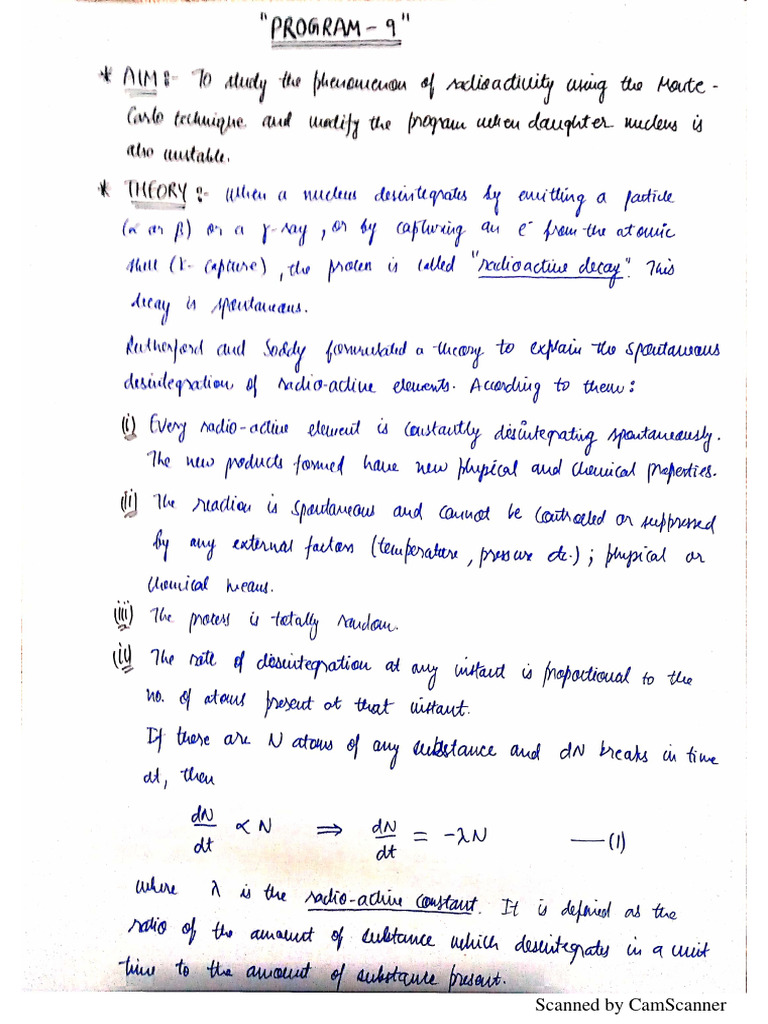 "PROGRAM - 9"
* AIM :- To study the phenomenon of radioactivity using the Monte -
Carlo technique and modify the program when daughter nucleus is
also unstable.
* THEORY :- When a nucleus desintegrates by emitting a particle
(α or β) or a γ-ray, or by capturing an e⁻ from the atomic
shell (K- Capture), the process is called "radioactive decay". This
decay is spontaneous.
Rutherford and Soddy formulated a theory to explain the spontaneous
desintegration of radio-active elements. According to them :
(i) Every radio-active element is constantly disintegrating spontaneously.
The new products formed have new physical and chemical properties.
(ii) The reaction is spontaneous and cannot be controlled or suppressed
by any external factors (temperature, pressure etc.) ; physical or
chemical means.
(iii) The process is totally random.
(iv) The rate of disintegration at any instant is propotional to the
no. of atoms present at that instant.
If there are N atoms of any substance and dN breaks in time
dt, then
dN/dt ∝ N ⇒ dN/dt = -λN —(1)
where λ is the radio-active constant. It is defined as the
ratio of the amount of substance which desintegrates in a unit
time to the amount of substance present.
Scanned by CamScanner